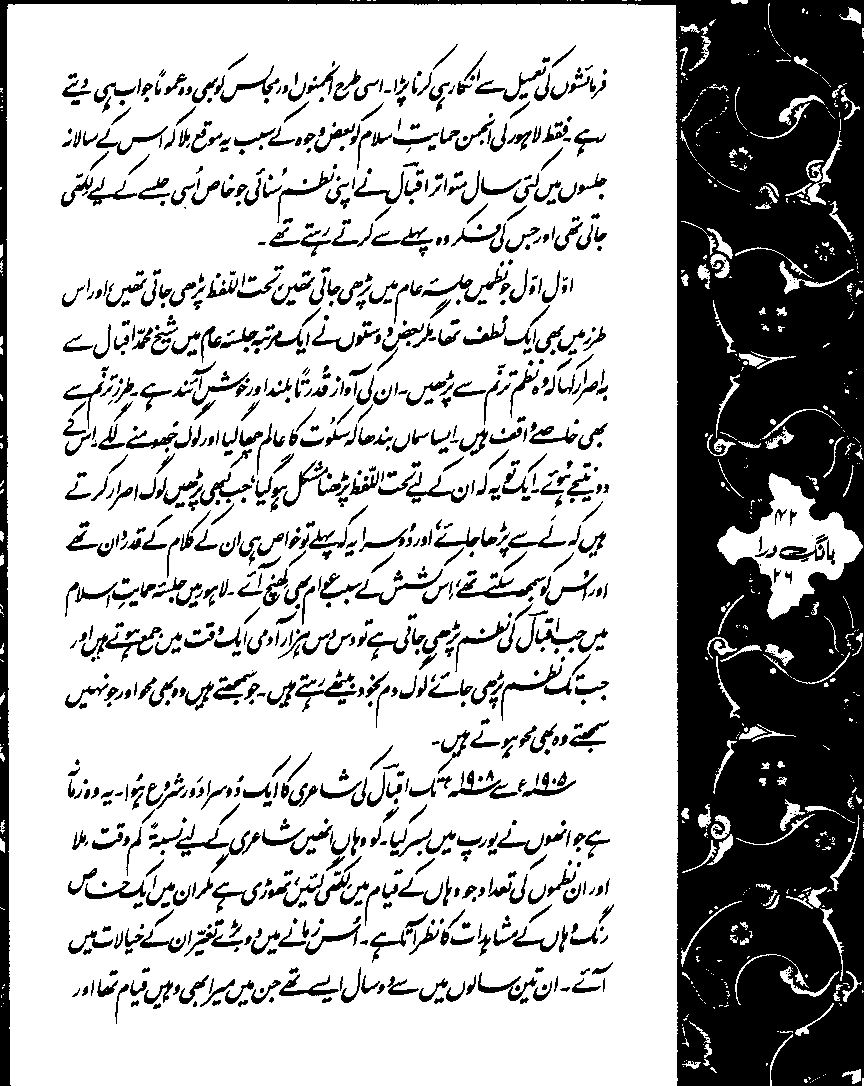 فرمائشوں کی تعمیل سے انکار ہی کرنا پڑا۔ اسی طرح انجمنوں اور مجالس کو بھی وہ عموماً جواب ہی دیتے
رہے۔ فقط لاہور کی انجمن حمایتِ اسلام کو بعض وجوہ کے سبب یہ موقع ملا کہ اس کے سالانہ
جلسوں میں کئی سال متواتر اقبالؔ نے اپنی نظم سُنائی جو خاص اُسی جلسے کے لیے لکھی
جاتی تھی اور جس کی فکر وہ پہلے سے کرتے رہتے تھے۔
اوّل اوّل جو نظمیں جلسۂ عام میں پڑھی جاتی تھیں، تحت اللّفظ پڑھی جاتی تھیں، اور اس
طرز میں بھی ایک لُطف تھا۔ مگر بعض دوستوں نے ایک مرتبہ جلسۂ عام میں شیخ محمد اقبال سے
بہ اصرار کہا کہ وہ نظم ترنّم سے پڑھیں۔ ان کی آواز قُدرتاً بلند اور خوش آئند ہے۔ طرزِ ترنّم سے
بھی خاصے واقف ہیں۔ ایسا سماں بندھا کہ سکُوت کا عالم چھا گیا اور لوگ جُھومنے لگے۔ اس کے
دو نتیجے ہُوئے۔ ایک تو یہ کہ ان کے لیے تحت اللّفظ پڑھنا مشکل ہو گیا، جب کبھی پڑھیں لوگ اصرار کرتے
ہیں کہ لَے سے پڑھا جائے، اور دُوسرا یہ کہ پہلے تو خواص ہی ان کے کلام کے قدردان تھے
اور اُس کو سمجھ سکتے تھے، اِس کشش کے سبب عوام بھی کھنچ آئے۔ لاہور میں جلسۂ حمایتِ اسلام
میں جب اقبالؔ کی نظم پڑھی جاتی ہے تو دس دس ہزار آدمی ایک وقت میں جمع ہوتے ہیں اور
جب تک نظم پڑھی جائے، لوگ دم بخود بیٹھے رہتے ہیں۔ جو سمجھتے ہیں وہ بھی محو اور جو نہیں
سمجھتے وہ بھی محو ہوتے ہیں۔
۱۹۰۵ء سے ۱۹۰۸ء تک اقبالؔ کی شاعری کا ایک دُوسرا دَور شروع ہُوا۔ یہ وہ زمانہ
ہے جو انھوں نے یورپ میں بسر کیا۔ گو وہاں انھیں شاعری کے لیے نسبۃً کم وقت ملا
اور ان نظموں کی تعداد جو وہاں کے قیام میں لکھی گئیں تھوڑی ہے مگر ان میں ایک خاص
رنگ وہاں کے مشاہدات کا نظر آتا ہے۔ اُس زمانے میں دو بڑے تغیّر ان کے خیالات میں
آئے۔ ان تین سالوں میں سے دو سال ایسے تھے جن میں میرا بھی وہیں قیام تھا اور
۴۲
بانگِ درا
۲۶